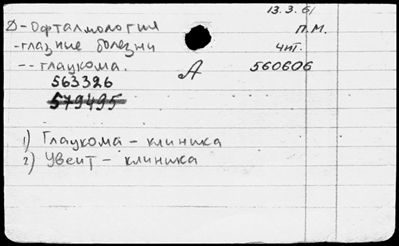 13.3.61
Д-Офталмология
П.М.
-глазные болезни
чит.
--глаукома.
А
560606
563326
579495
1) Глаукома - клиника
2) Увеит - клиника